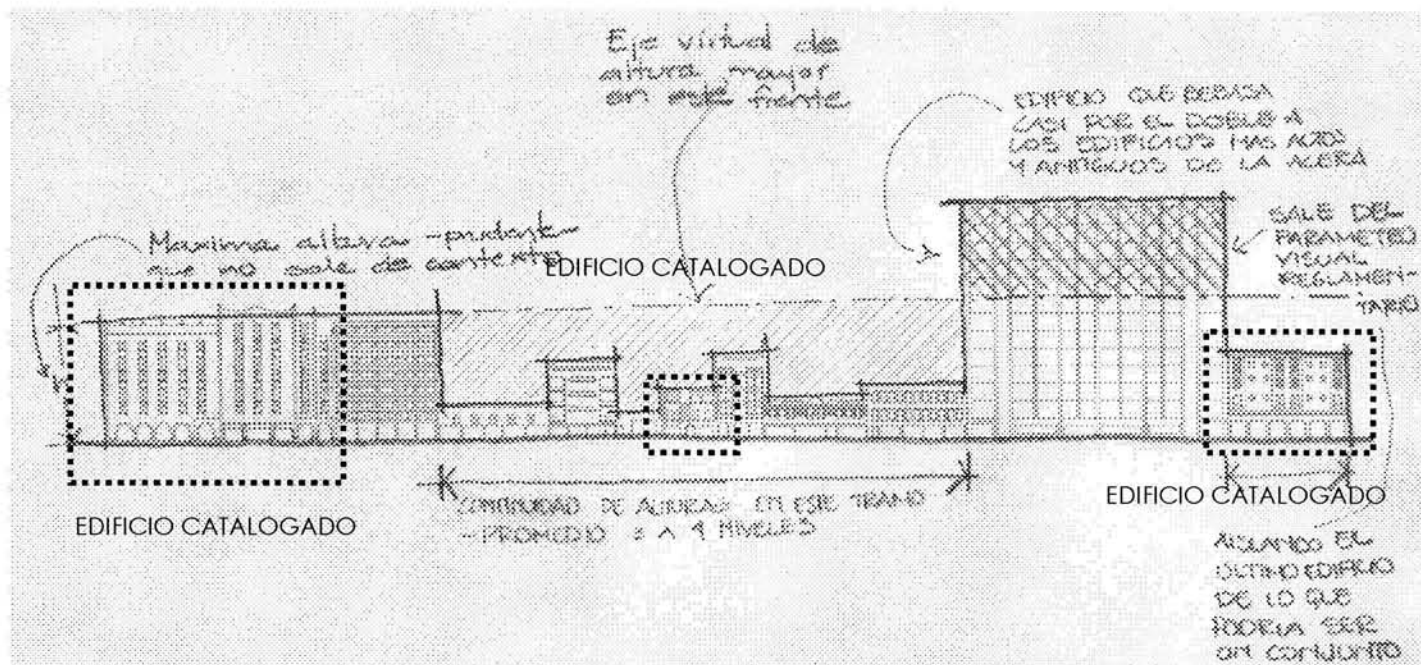 Eje virtual de
altura mayor
en este frente
EDIFICIO QUE REBASA
CASI POR EL DOBLE A
LOS EDIFICIOS MAS ALTOS
Y ANTIGUOS DE LA ACERA
SALE DEL
PARAMETRO
VISUAL
REGLAMEN-
TARIO
Maxima altura -prudente-
que no sale de contexto
EDIFICIO CATALOGADO
EDIFICIO CATALOGADO
CONTINUIDAD DE ALTURAS EN ESTE TRAMO
-PROMEDIO 3 A 4 NIVELES
EDIFICIO CATALOGADO
AISLANDO EL
ULTIMO EDIFICIO
DE LO QUE
PODRIA SER
UN CONJUNTO